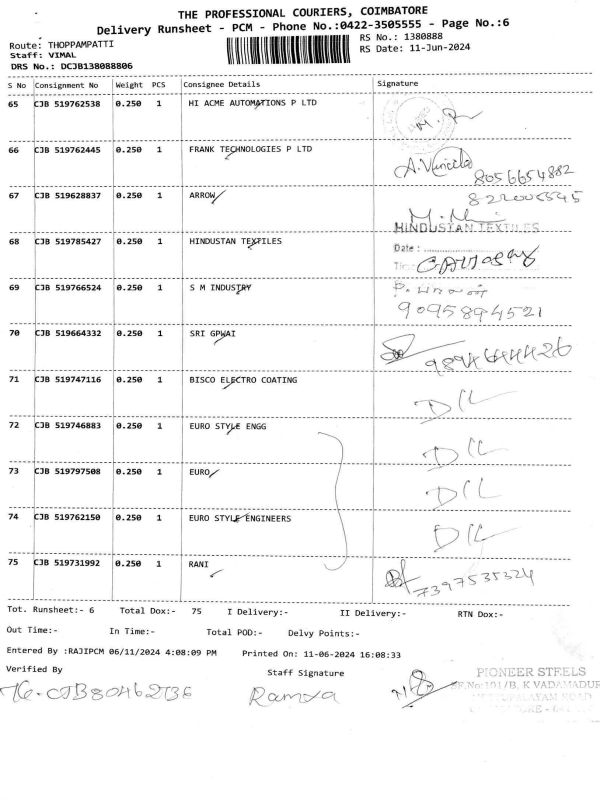 THE PROFESSIONAL COURIERS, COIMBATORE
Delivery Runsheet - PCM - Phone No.:0422-3505555 - Page No.:6
Route: THOPPAMPATTI
RS No.: 1380888
Staff: VIMAL
RS Date: 11-Jun-2024
DRS No.: DCJB138088806
S No Consignment No Weight PCS Consignee Details Signature
65 CJB 519762538 0.250 1 HI ACME AUTOMATIONS P LTD
66 CJB 519762445 0.250 1 FRANK TECHNOLOGIES P LTD
8056654882
67 CJB 519628837 0.250 1 ARROW
HINDUSTAN TEXTILES
68 CJB 519785427 0.250 1 HINDUSTAN TEXTILES Date :
69 CJB 519766524 0.250 1 S M INDUSTRY
9095894521
70 CJB 519664332 0.250 1 SRI GPWAI
71 CJB 519747116 0.250 1 BISCO ELECTRO COATING
D/L
72 CJB 519746883 0.250 1 EURO STYLE ENGG
D/L
73 CJB 519797508 0.250 1 EURO
D/L
74 CJB 519762150 0.250 1 EURO STYLE ENGINEERS
D/L
75 CJB 519731992 0.250 1 RANI
7397535324
Tot. Runsheet:- 6 Total Dox:- 75 I Delivery:- II Delivery:- RTN Dox:-
Out Time:- In Time:- Total POD:- Delvy Points:-
Entered By :RAJIPCM 06/11/2024 4:08:09 PM Printed On: 11-06-2024 16:08:33
Verified By Staff Signature
PIONEER STEELS
SF.No:101/B, K VADAMADUR
Ramya